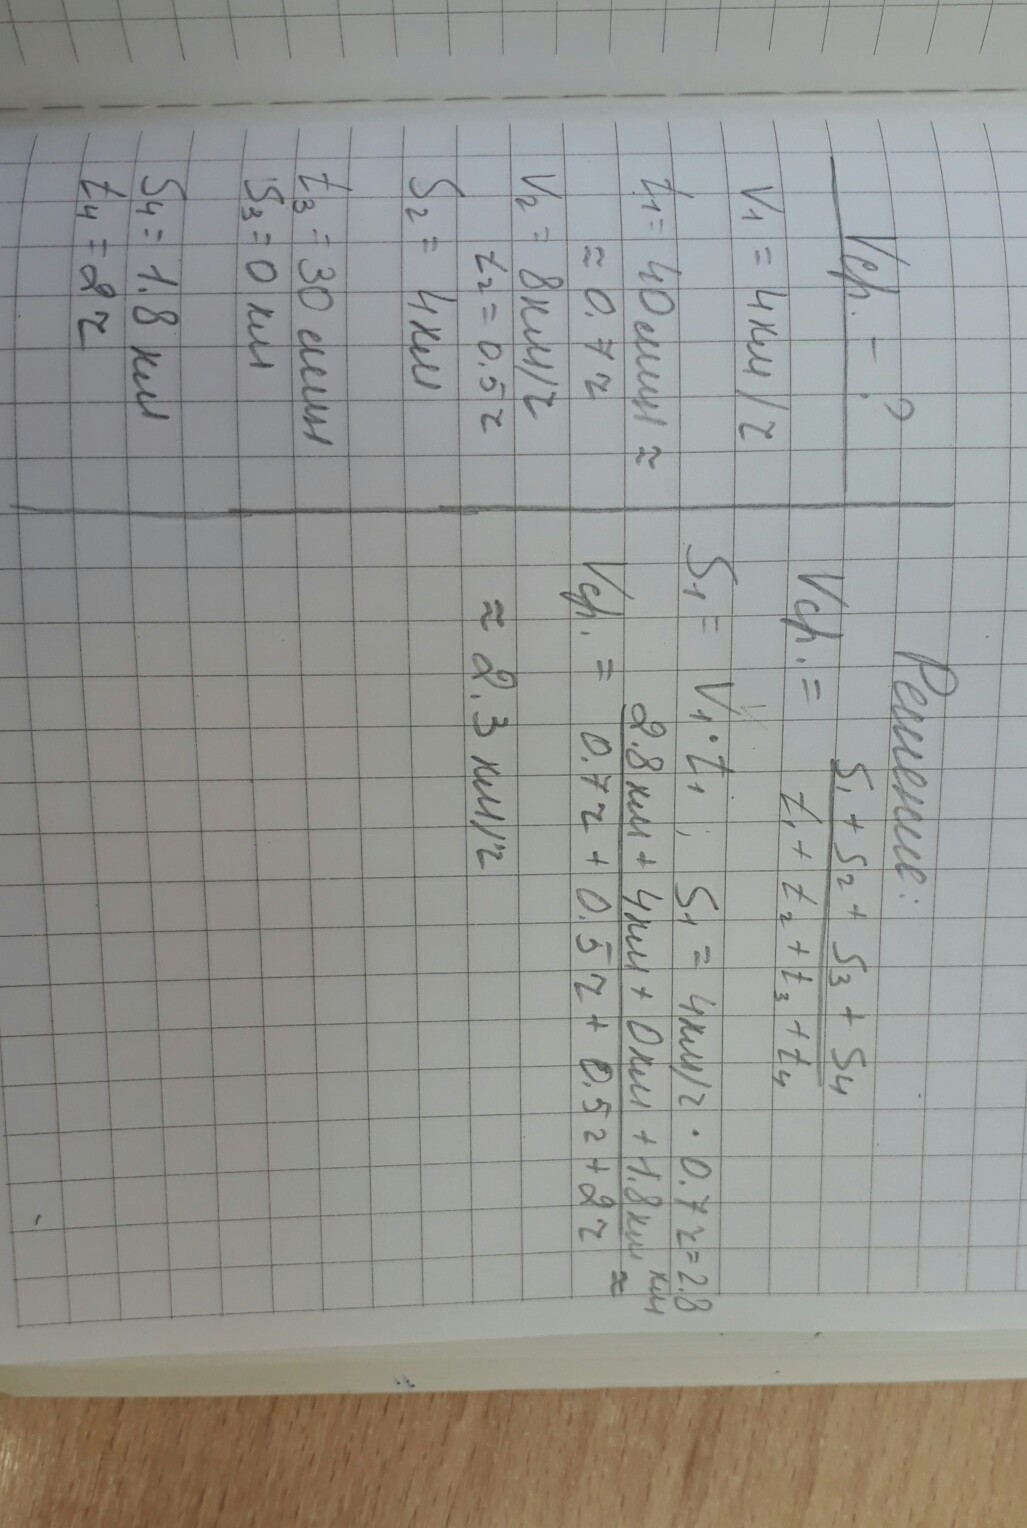 Vср. - ?
V₁ = 4км/ч
t₁ = 40мин ≈
≈ 0.7ч
V₂ = 8км/ч
t₂ = 0.5ч
S₂ = 4км
t₃ = 30мин
S₃ = 0км
S₄ = 1.8км
t₄ = 2ч
Решение:
Vср. = (S₁ + S₂ + S₃ + S₄) / (t₁ + t₂ + t₃ + t₄)
S₁ = V₁ · t₁; S₁ = 4км/ч · 0.7ч = 2.8 км
Vср. = (2.8км + 4км + 0км + 1.8км) / (0.7ч + 0.5ч + 0.5ч + 2ч) ≈
≈ 2.3км/ч